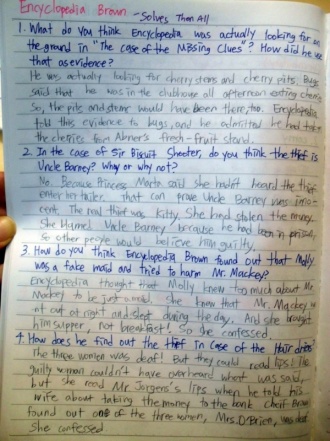 Encyclopedia Brown - Solves Them All
1. What do you think Encyclopedia was actually looking for on
the ground in "The case of the Missing Clues"? How did he use
that as evidence?
He was actually looking for cherry stems and cherry pits. Bugs
said that he was in the clubhouse all afternoon eating cherries
So, the pits and stems would have been there, too. Encyclopedia
told this evidence to bugs, and he admitted he had taken
the cherries from Abner's fresh-fruit stand.
2. In the case of Sir Biscuit Shooter, do you think the thief is
Uncle Barney? Why or why not?
No. Because Princess Marta said she hadn't heard the thief
enter her trailer. that can prove Uncle Barney was inno-
cent. The real thief was Kitty. She had stolen the money.
She blamed Uncle Barney because he had been in prison,
So other people would believe him guilty.
3. How do you think Encyclopedia Brown found out that Molly
was a fake maid and tried to harm Mr. Mackey?
Encyclopedia thought that Molly knew too much about Mr.
Mackey to be just a maid. She knew that Mr. Mackey
nt out at night and slept during the day. And she brought
him supper, not breakfast! So she confessed.
4. How does he find out the thief in case of the Hair driers
The three women were deaf! But they could read lips! The
guilty woman couldn't have overheard what was said,
but she read Mr. Jorgens's lips when he told his
wife about taking the money to the bank Cheif Brown
found out one of the three women, Mrs. O'Brien, was deaf
She confessed